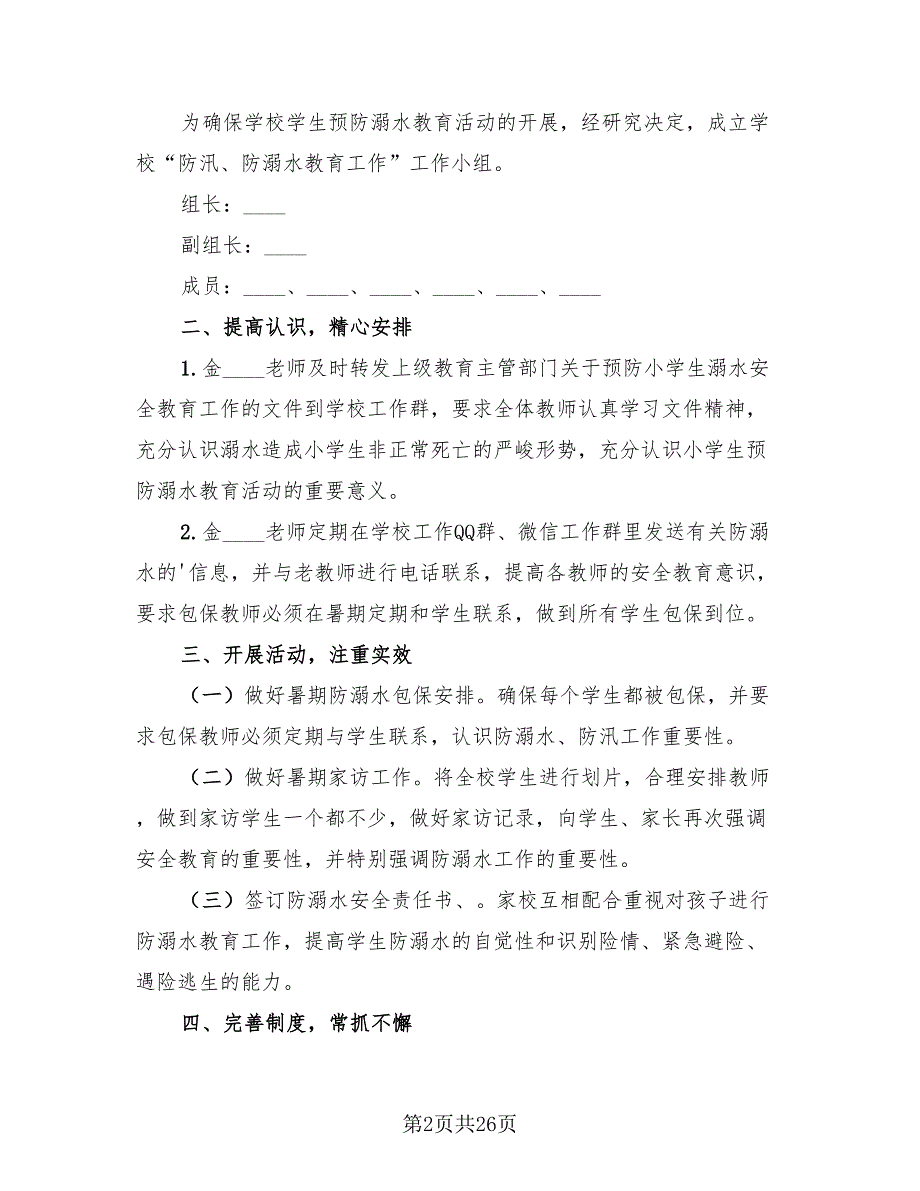 为确保学校学生预防溺水教育活动的开展，经研究决定，成立学
校“防汛、防溺水教育工作”工作小组。
组长：____
副组长：____
成员：____、____、____、____、____、____
二、提高认识，精心安排
1. 金____老师及时转发上级教育主管部门关于预防小学生溺水安
全教育工作的文件到学校工作群，要求全体教师认真学习文件精神，
充分认识溺水造成小学生非正常死亡的严峻形势，充分认识小学生预
防溺水教育活动的重要意义。
2. 金____老师定期在学校工作QQ群、微信工作群里发送有关防溺
水的'信息，并与老教师进行电话联系，提高各教师的安全教育意识，
要求包保教师必须在暑期定期和学生联系，做到所有学生包保到位。
三、开展活动，注重实效
（一）做好暑期防溺水包保安排。确保每个学生都被包保，并要
求包保教师必须定期与学生联系，认识防溺水、防汛工作重要性。
（二）做好暑期家访工作。将全校学生进行划片，合理安排教师
，做到家访学生一个都不少，做好家访记录，向学生、家长再次强调
安全教育的重要性，并特别强调防溺水工作的重要性。
（三）签订防溺水安全责任书、。家校互相配合重视对孩子进行
防溺水教育工作，提高学生防溺水的自觉性和识别险情、紧急避险、
遇险逃生的能力。
四、完善制度，常抓不懈
第2页共26页